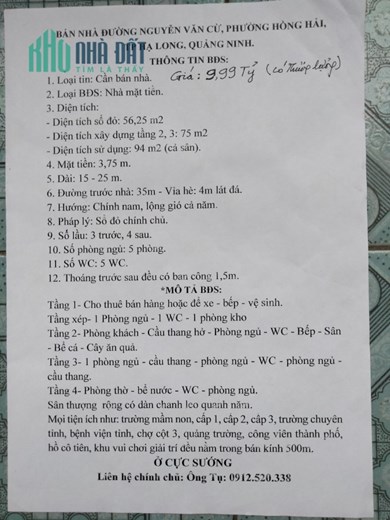 BÁN NHÀ ĐƯỜNG NGUYỄN VĂN CỪ, PHƯỜNG HỒNG HẢI,
TP HẠ LONG, QUẢNG NINH.
KHO NHÀ ĐẤT
TÌM LÀ THẤY
THÔNG TIN BĐS:
Giá: 9,99 Tỷ (có thương lượng)
1. Loại tin: Cần bán nhà.
2. Loại BĐS: Nhà mặt tiền.
3. Diện tích:
- Diện tích sổ đỏ: 56,25 m2
- Diện tích xây dựng tầng 2, 3: 75 m2
- Diện tích sử dụng: 94 m2 (cả sân).
4. Mặt tiền: 3,75 m.
5. Dài: 15 - 25 m.
6. Đường trước nhà: 35m - Vỉa hè: 4m lát đá.
7. Hướng: Chính nam, lộng gió cả năm.
8. Pháp lý: Sổ đỏ chính chủ.
9. Số lầu: 3 trước, 4 sau.
10. Số phòng ngủ: 5 phòng.
11. Số WC: 5 WC.
12. Thoáng trước sau đều có ban công 1,5m.
*MÔ TẢ BĐS:
Tầng 1- Cho thuê bán hàng hoặc để xe - bếp - vệ sinh.
Tầng xép- 1 Phòng ngủ - 1 WC - 1 phòng kho
Tầng 2- Phòng khách - Cầu thang hở - Phòng ngủ - WC - Bếp - Sân
- Bể cá - Cây ăn quả.
Tầng 3- 1 phòng ngủ - cầu thang - phòng ngủ - WC - phòng ngủ -
cầu thang.
Tầng 4- Phòng thờ - bể nước - WC - phòng ngủ.
Sân thượng rộng có dàn chanh leo quanh năm.
Mọi tiện ích như: trường mầm non, cấp 1, cấp 2, cấp 3, trường chuyên
tỉnh, bệnh viện tỉnh, chợ cột 3, quảng trường, công viên thành phố,
hồ cô tiên, khu vui chơi giải trí đều nằm trong bán kính 500m.
Ở CỰC SƯỚNG
Liên hệ chính chủ: Ông Tụ: 0912.520.338